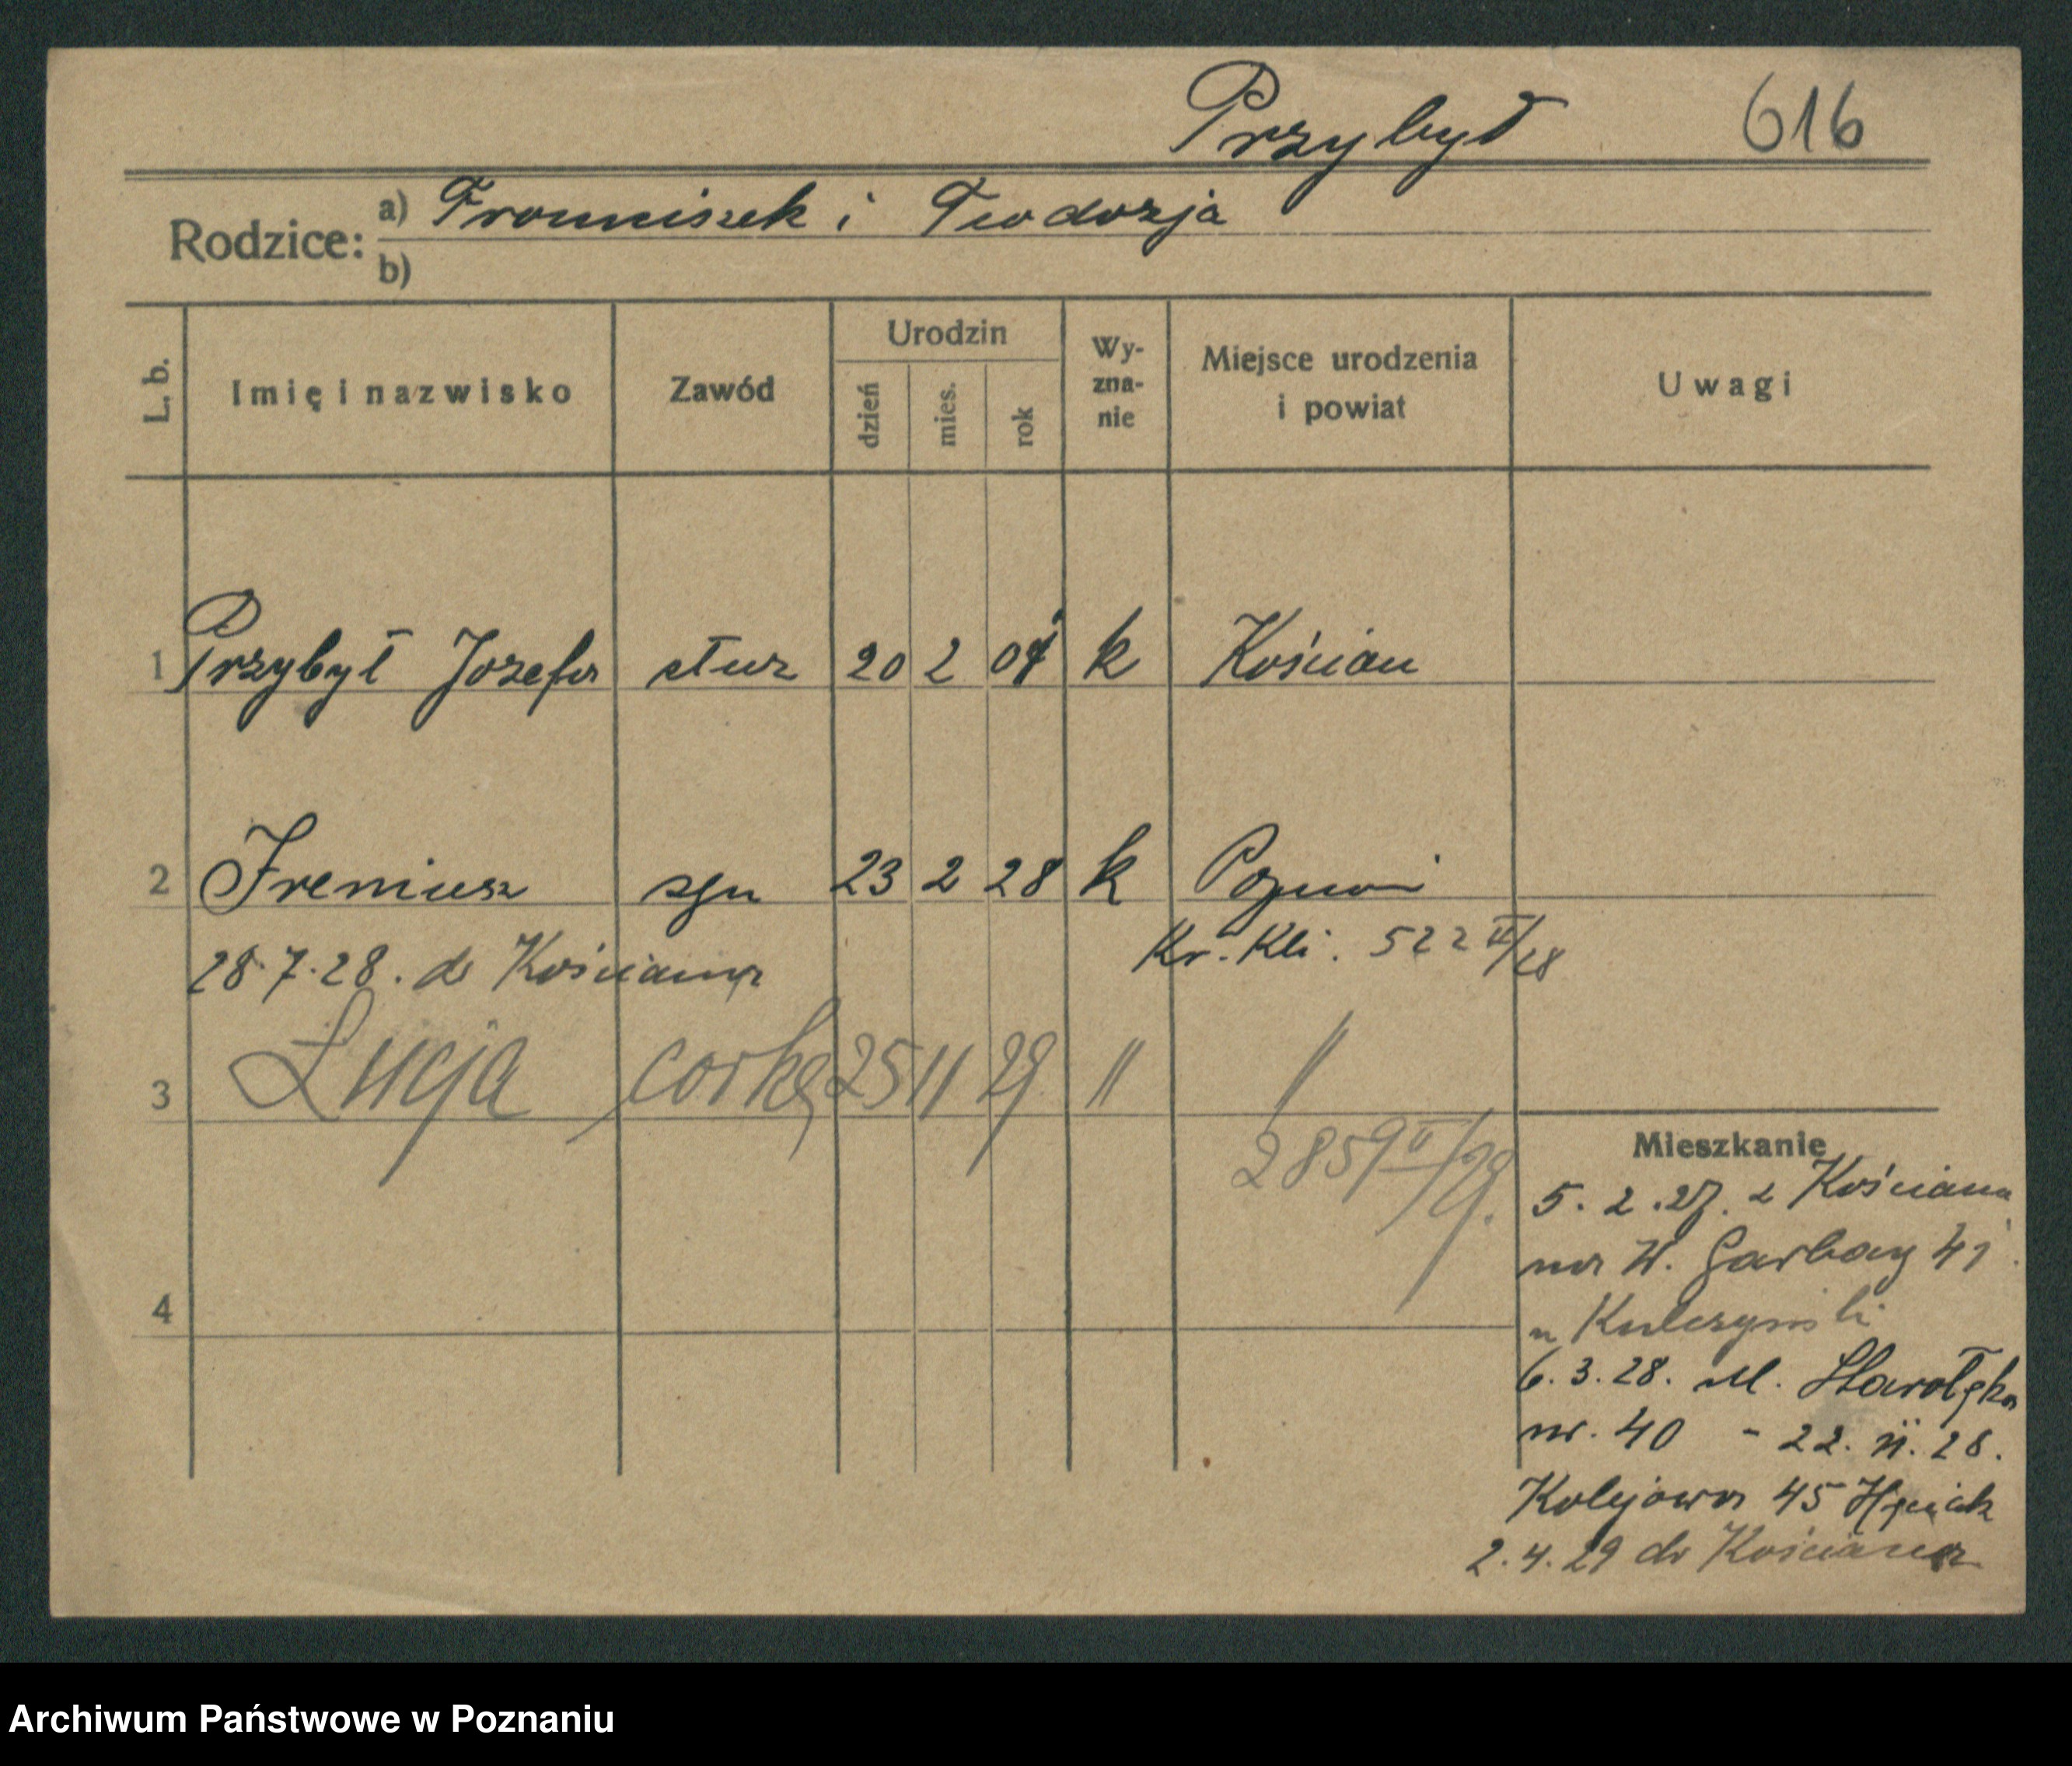 Przybył 616
Rodzice: a) Franciszek i Teodozja
b)
L. b. Imię i nazwisko Zawód Urodzin dzień mies. rok Wy-zna-nie Miejsce urodzenia i powiat Uwagi
1 Przybył Józefa służ 20 2 04 k Kościan
2 Ireniusz syn 23 2 28 k Poznań
28.7.28. do Kościana Kr. Kli. 522 II/28
3 Łucja córka 25 11 29 " "
2859 II/29.
4
Mieszkanie
5. 2. 27. z Kościana
na W. Garbary 41
u Kulczyński
6. 3. 28. ul. Starołęka
nr. 40 - 22. II. 28.
Kolejowa 45
2. 4. 29 do Kościana
Archiwum Państwowe w Poznaniu